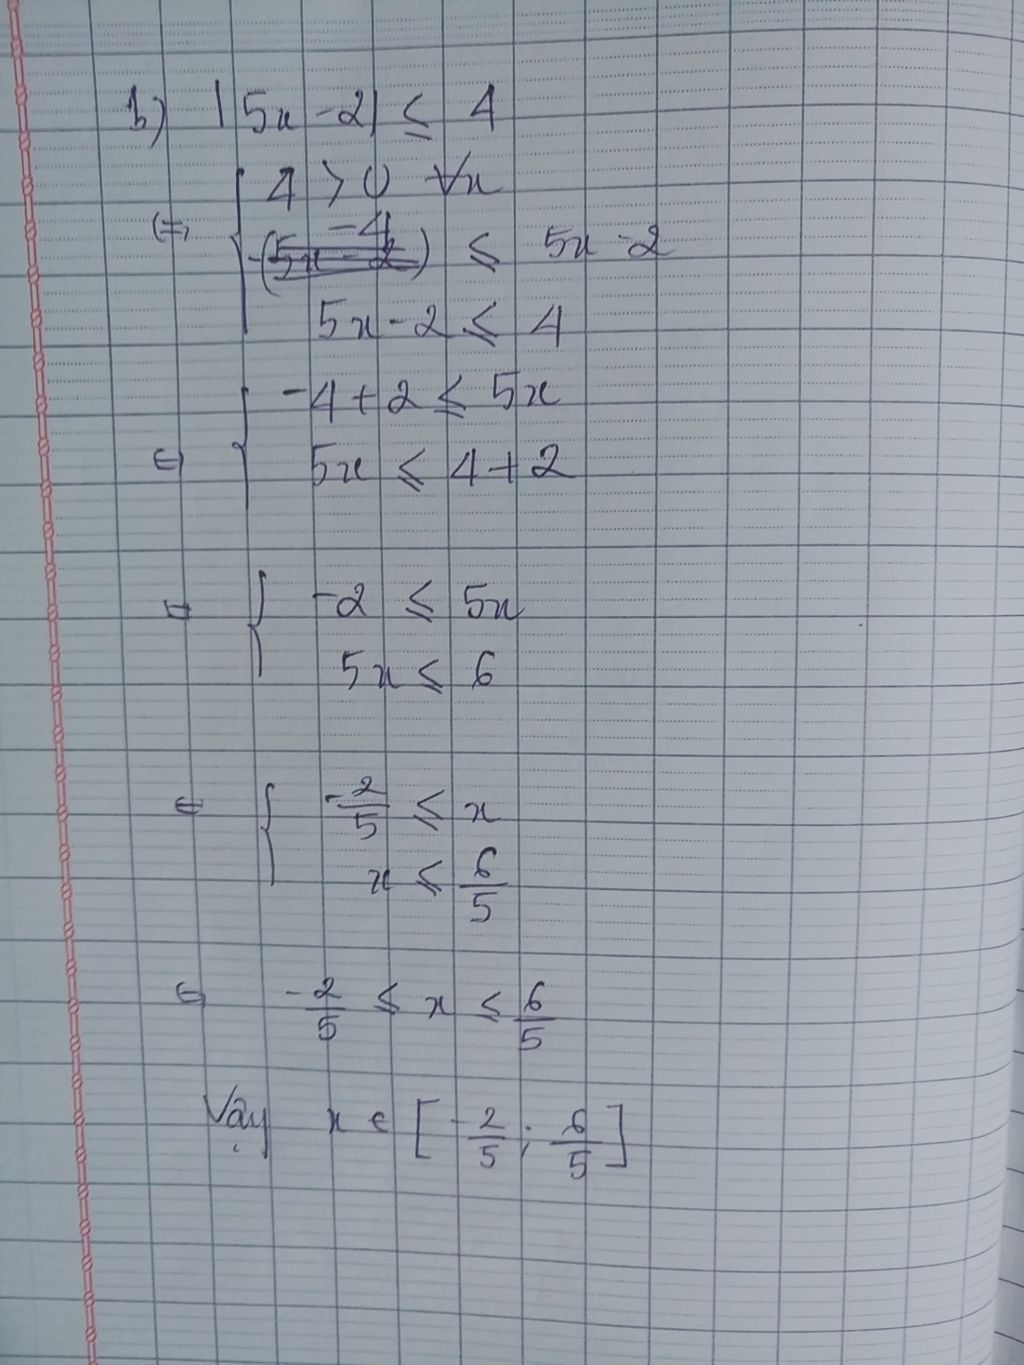 b) |5x - 2| ≤ 4
4 > 0 ∀x
⇔ { -4 ≤ 5x - 2
5x - 2 ≤ 4
-4 + 2 ≤ 5x
⇔ { 5x ≤ 4 + 2
⇔ { -2 ≤ 5x
5x ≤ 6
⇔ { -2/5 ≤ x
x ≤ 6/5
⇔ -2/5 ≤ x ≤ 6/5
Vậy x ∈ [-2/5 ; 6/5]